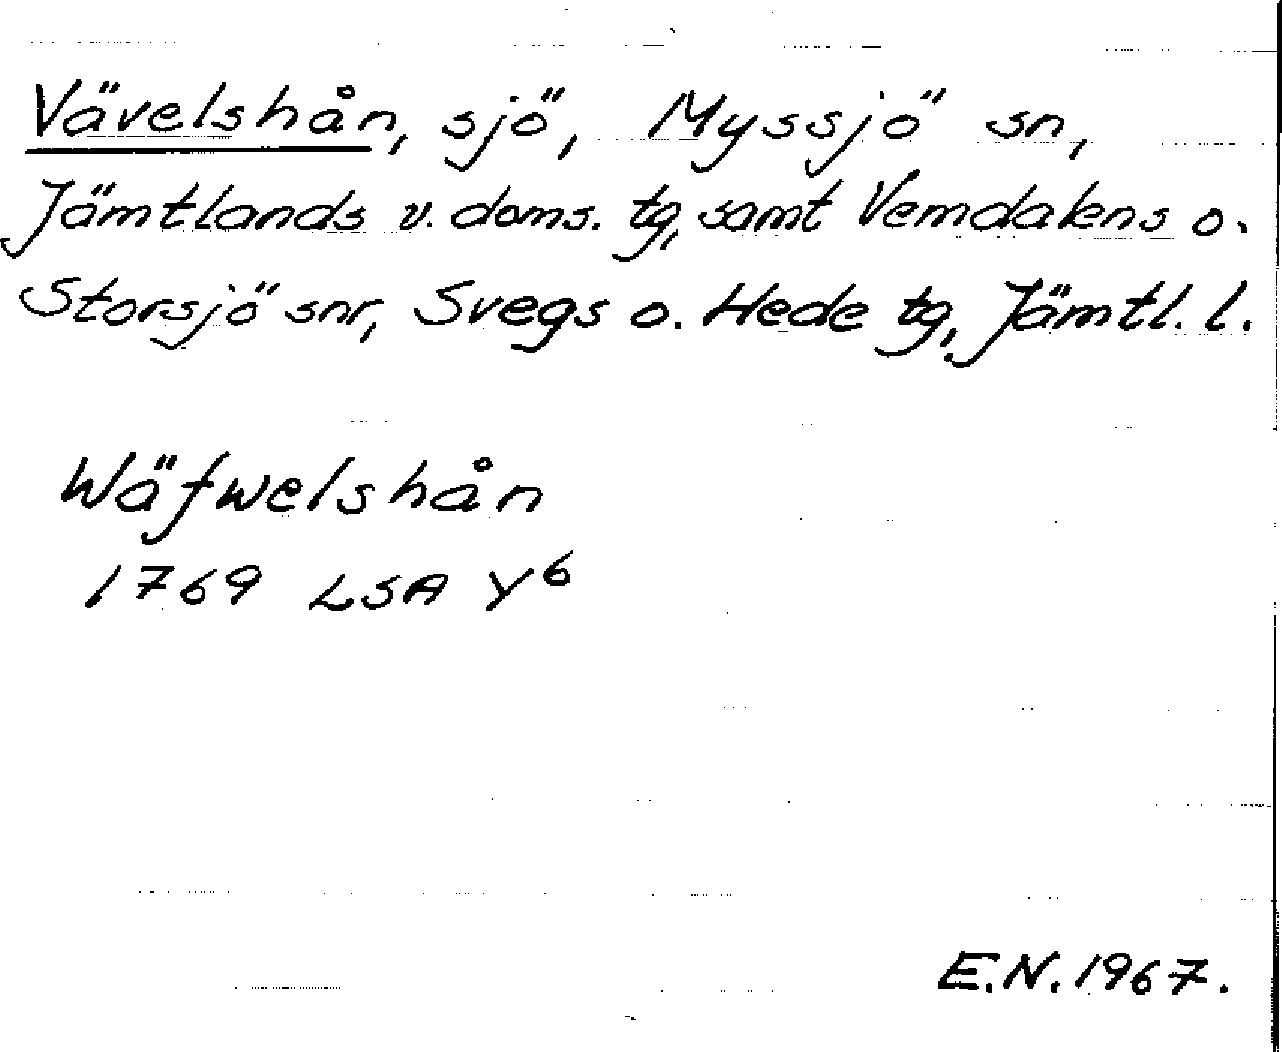 Vävelshån, sjö, Myssjö sn,
Jämtlands v. doms. tg, samt Vemdalens o.
Storsjö snr, Svegs o. Hede tg, Jämtl. l.
Wäfwelshån
1769 LSA Y6
E.N. 1967.